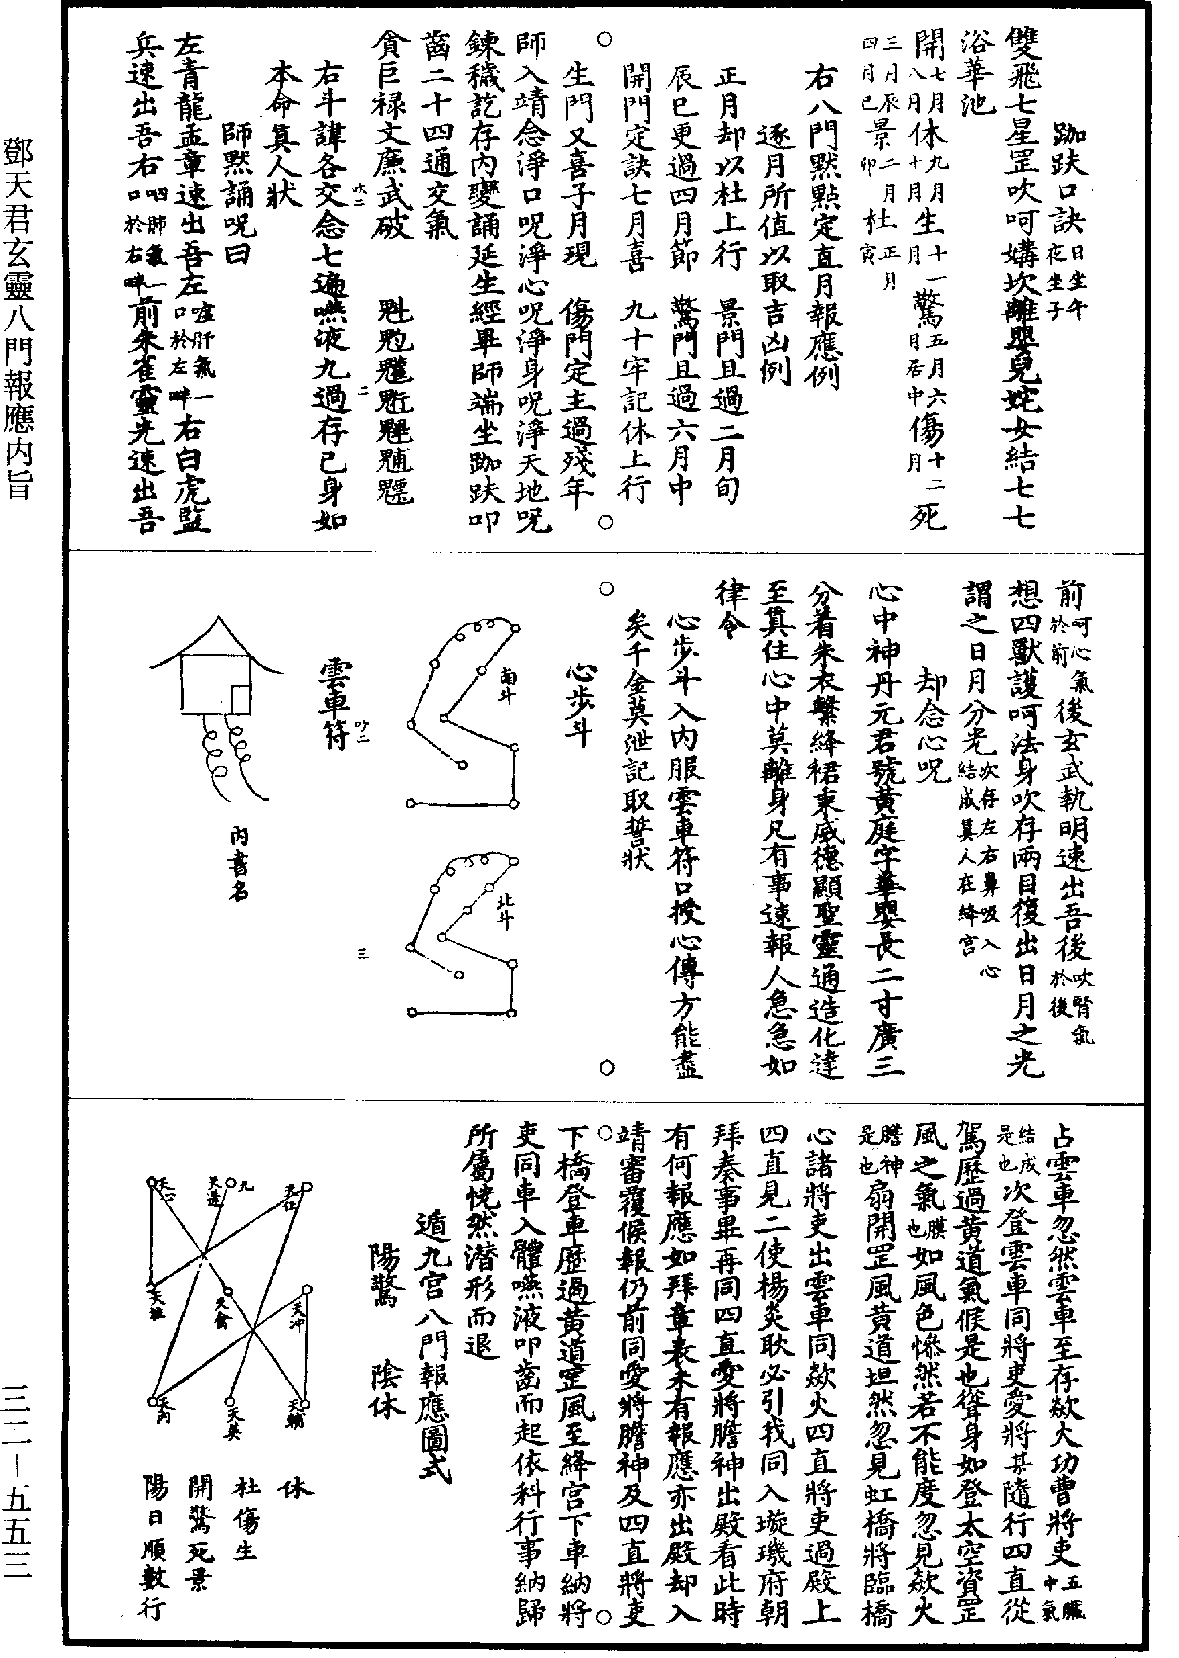 跏趺口訣日坐午夜坐子
雙飛七星罡吹呵媾坎離嬰兒姹女結七七
浴華池
開七月八月休九月十月生十一月驚五月六月居中傷十二月死
三月辰四月巳景二月卯杜正月寅
右八門默點定直月報應例
逐月所值以取吉凶例
正月却以杜上行 景門且過二月旬
辰巳更過四月節 驚門且過六月中
開門定訣七月喜 九十牢記休上行
生門又喜子月現 傷門定主過殘年
師入靖念淨口呪淨心呪淨身呪淨天地呪
鍊穢訖存內變誦延生經畢師端坐跏趺叩
齒二十四通交氣
貪巨祿文廉武破 魁䰢䰡魓
右斗諱各交念七遍嚥液九過存己身如
本命真人狀
師默誦呪曰
左青龍孟章速出吾左噓肝氣一口於左畔右白虎監
兵速出吾右呬肺氣一口於右畔前朱雀靈光速出吾
前呵心氣於前後玄武執明速出吾後吹腎氣於後
想四獸護呵法身吹存兩目復出日月之光
謂之日月分光次存左右鼻吸入心結成真人在絳宮
却念心呪
心中神丹元君號黃庭字華嬰長二寸廣三
分着朱衣繫絳裙秉威德顯聖靈通造化達
至真住心中莫離身凡有事速報人急急如
律令
心步斗入內服雲車符口授心傳方能盡
矣千金莫泄記取誓狀
心步斗
南斗
北斗
雲車符
內書名
占雲車忽然雲車至存歘火功曹將吏五臟中氣
結成是也次登雲車同將吏愛將某隨行四直從
駕歷過黃道氣候是也聳身如登太空資罡
風之氣膜也如風色慘然若不能度忽見歘火
膽神是也扇開罡風黃道坦然忽見虹橋將臨橋
心諸將吏出雲車同歘火四直將吏過殿上
四直見二使楊炎耿必引我同入璇璣府朝
拜奏事畢再同四直愛將膽神出殿看此時
有何報應如拜章表未有報應亦出殿却入
靖審覆候報仍前同愛將膽神及四直將吏
下橋登車歷過黃道罡風至絳宮下車納將
吏同車入體嚥液叩齒而起依科行事納歸
所屬恍然潛形而退
遁九宮八門報應圖式
陽驚 陰休
天蓬
天任
天禽
天冲
天芮
天英
天輔
休
杜傷生
開驚死景
陽日順數行
鄧天君玄靈八門報應内旨
三二－五五三